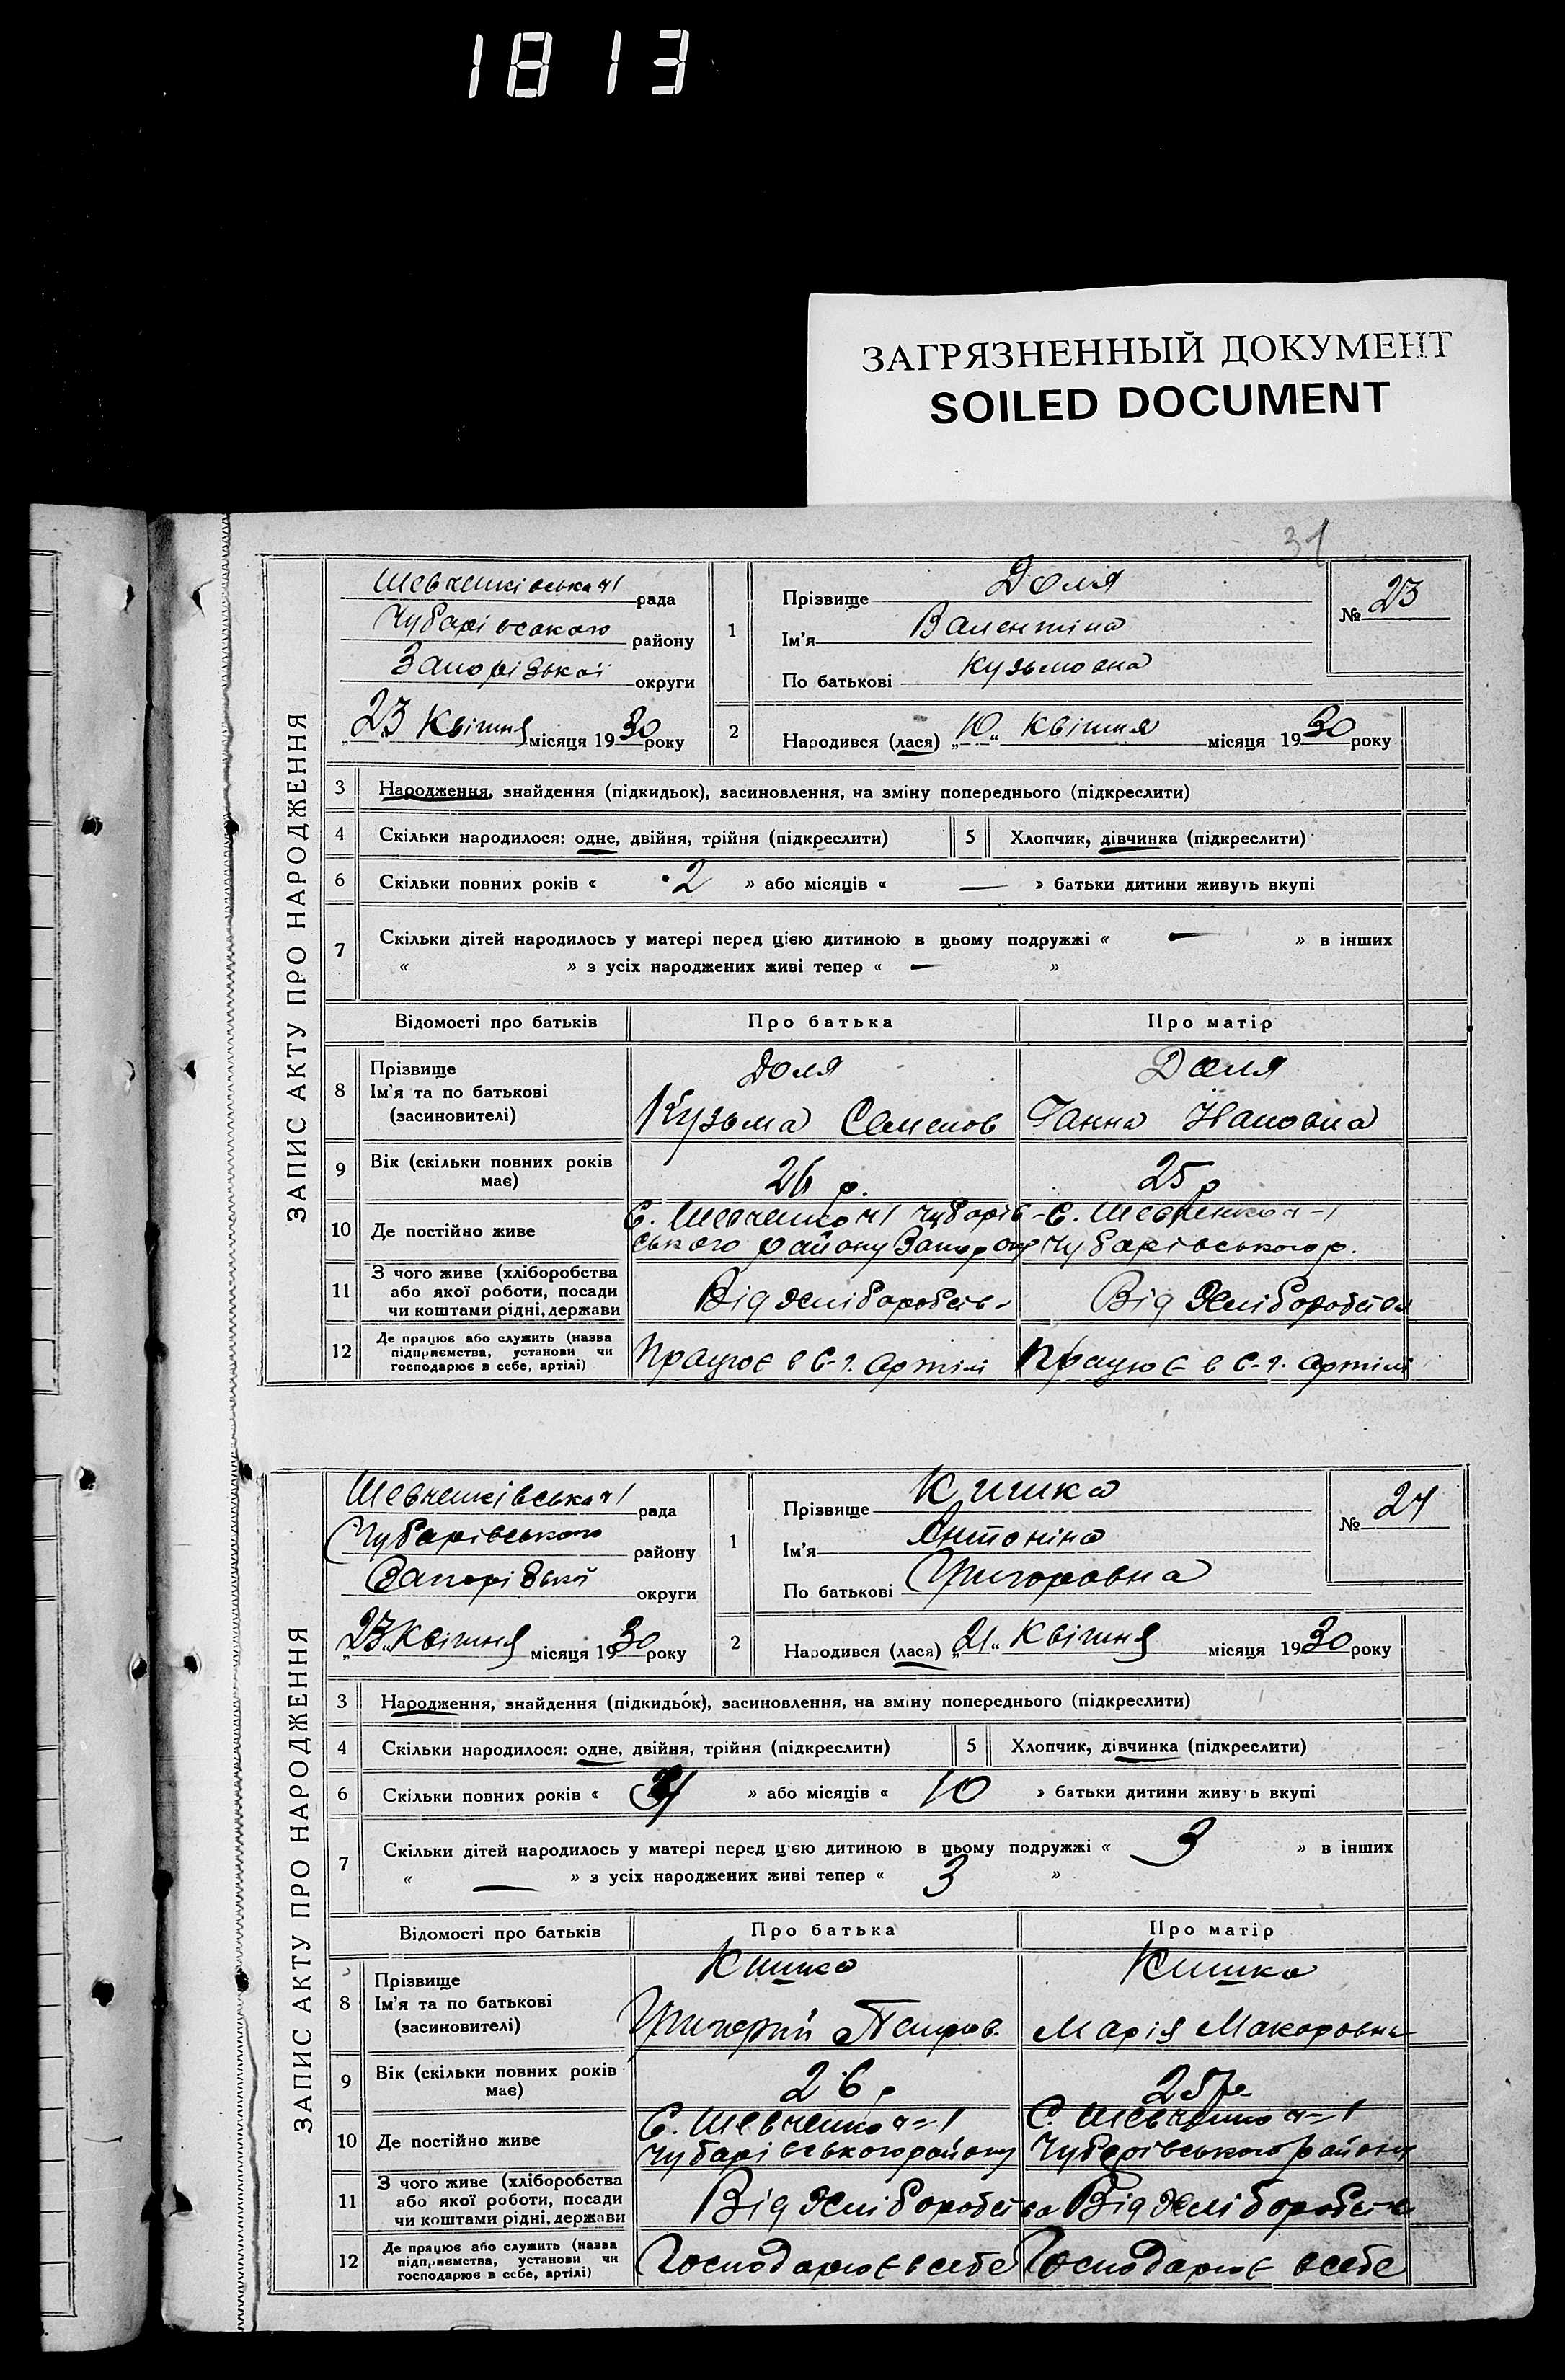 1813
ЗАГРЯЗНЕННЫЙ ДОКУМЕНТ
SOILED DOCUMENT
31
ЗАПИС АКТУ ПРО НАРОДЖЕННЯ
Шевченківська ч1 рада
Чубарівського району
Запорізької округи
„23 Квітня місяця 1930 року
1
Прізвище Доля
Ім'я Валентина
По батькові Кузьмовна
№ 23
2
Народився (лася) „10“ Квітня місяця 1930 року
3 Народження, знайдення (підкидьок), засиновлення, на зміну попереднього (підкреслити)
4 Скільки народилося: одне, двійня, трійня (підкреслити) 5 Хлопчик, дівчинка (підкреслити)
6 Скільки повних років « 2 » або місяців « — » батьки дитини живуть вкупі
7 Скільки дітей народилось у матері перед цією дитиною в цьому подружжі « — » в інших
« » з усіх народжених живі тепер « — »
Відомості про батьків Про батька Про матір
8 Прізвище
Ім'я та по батькові
(засиновителі)
Доля Доля
Кузьма Семенов Ганна
9 Вік (скільки повних років
має)
26 р. 25 р
10 Де постійно живе
С. Шевченко ч1 Чубарів- С. Шевченко ч-1
ського району Запор окр Чубарівського р.
11 З чого живе (хліборобства
або якої роботи, посади
чи коштами рідні, держави
Від хліборобств. Від хліборобства
12 Де працює або служить (назва
підприємства, установи чи
господарює в себе, артілі)
Працює в с-г. артілі Працює в с-г. артілі
ЗАПИС АКТУ ПРО НАРОДЖЕННЯ
Шевченківська ч1 рада
Чубарівського району
Запорізької округи
„23„ Квітня місяця 1930 року
1
Прізвище Кишка
Ім'я Антоніна
По батькові Григоровна
№ 24
2
Народився (лася) „21“ Квітня місяця 1930 року
3 Народження, знайдення (підкидьок), засиновлення, на зміну попереднього (підкреслити)
4 Скільки народилося: одне, двійня, трійня (підкреслити) 5 Хлопчик, дівчинка (підкреслити)
6 Скільки повних років « » або місяців « 10 » батьки дитини живуть вкупі
7 Скільки дітей народилось у матері перед цією дитиною в цьому подружжі « 3 » в інших
« — » з усіх народжених живі тепер « 3 »
Відомості про батьків Про батька Про матір
8 Прізвище
Ім'я та по батькові
(засиновителі)
Кишка Кишка
Григорій Петров. Марія Макаровна
9 Вік (скільки повних років
має)
26 р 25 р.
10 Де постійно живе
С. Шевченко ч=1 С. Шевченко ч=1
Чубарівського району Чубарівського району
11 З чого живе (хліборобства
або якої роботи, посади
чи коштами рідні, держави
Від хліборобства Від хліборобств
12 Де працює або служить (назва
підприємства, установи чи
господарює в себе, артілі)
Господарює в себе Господарює в себе